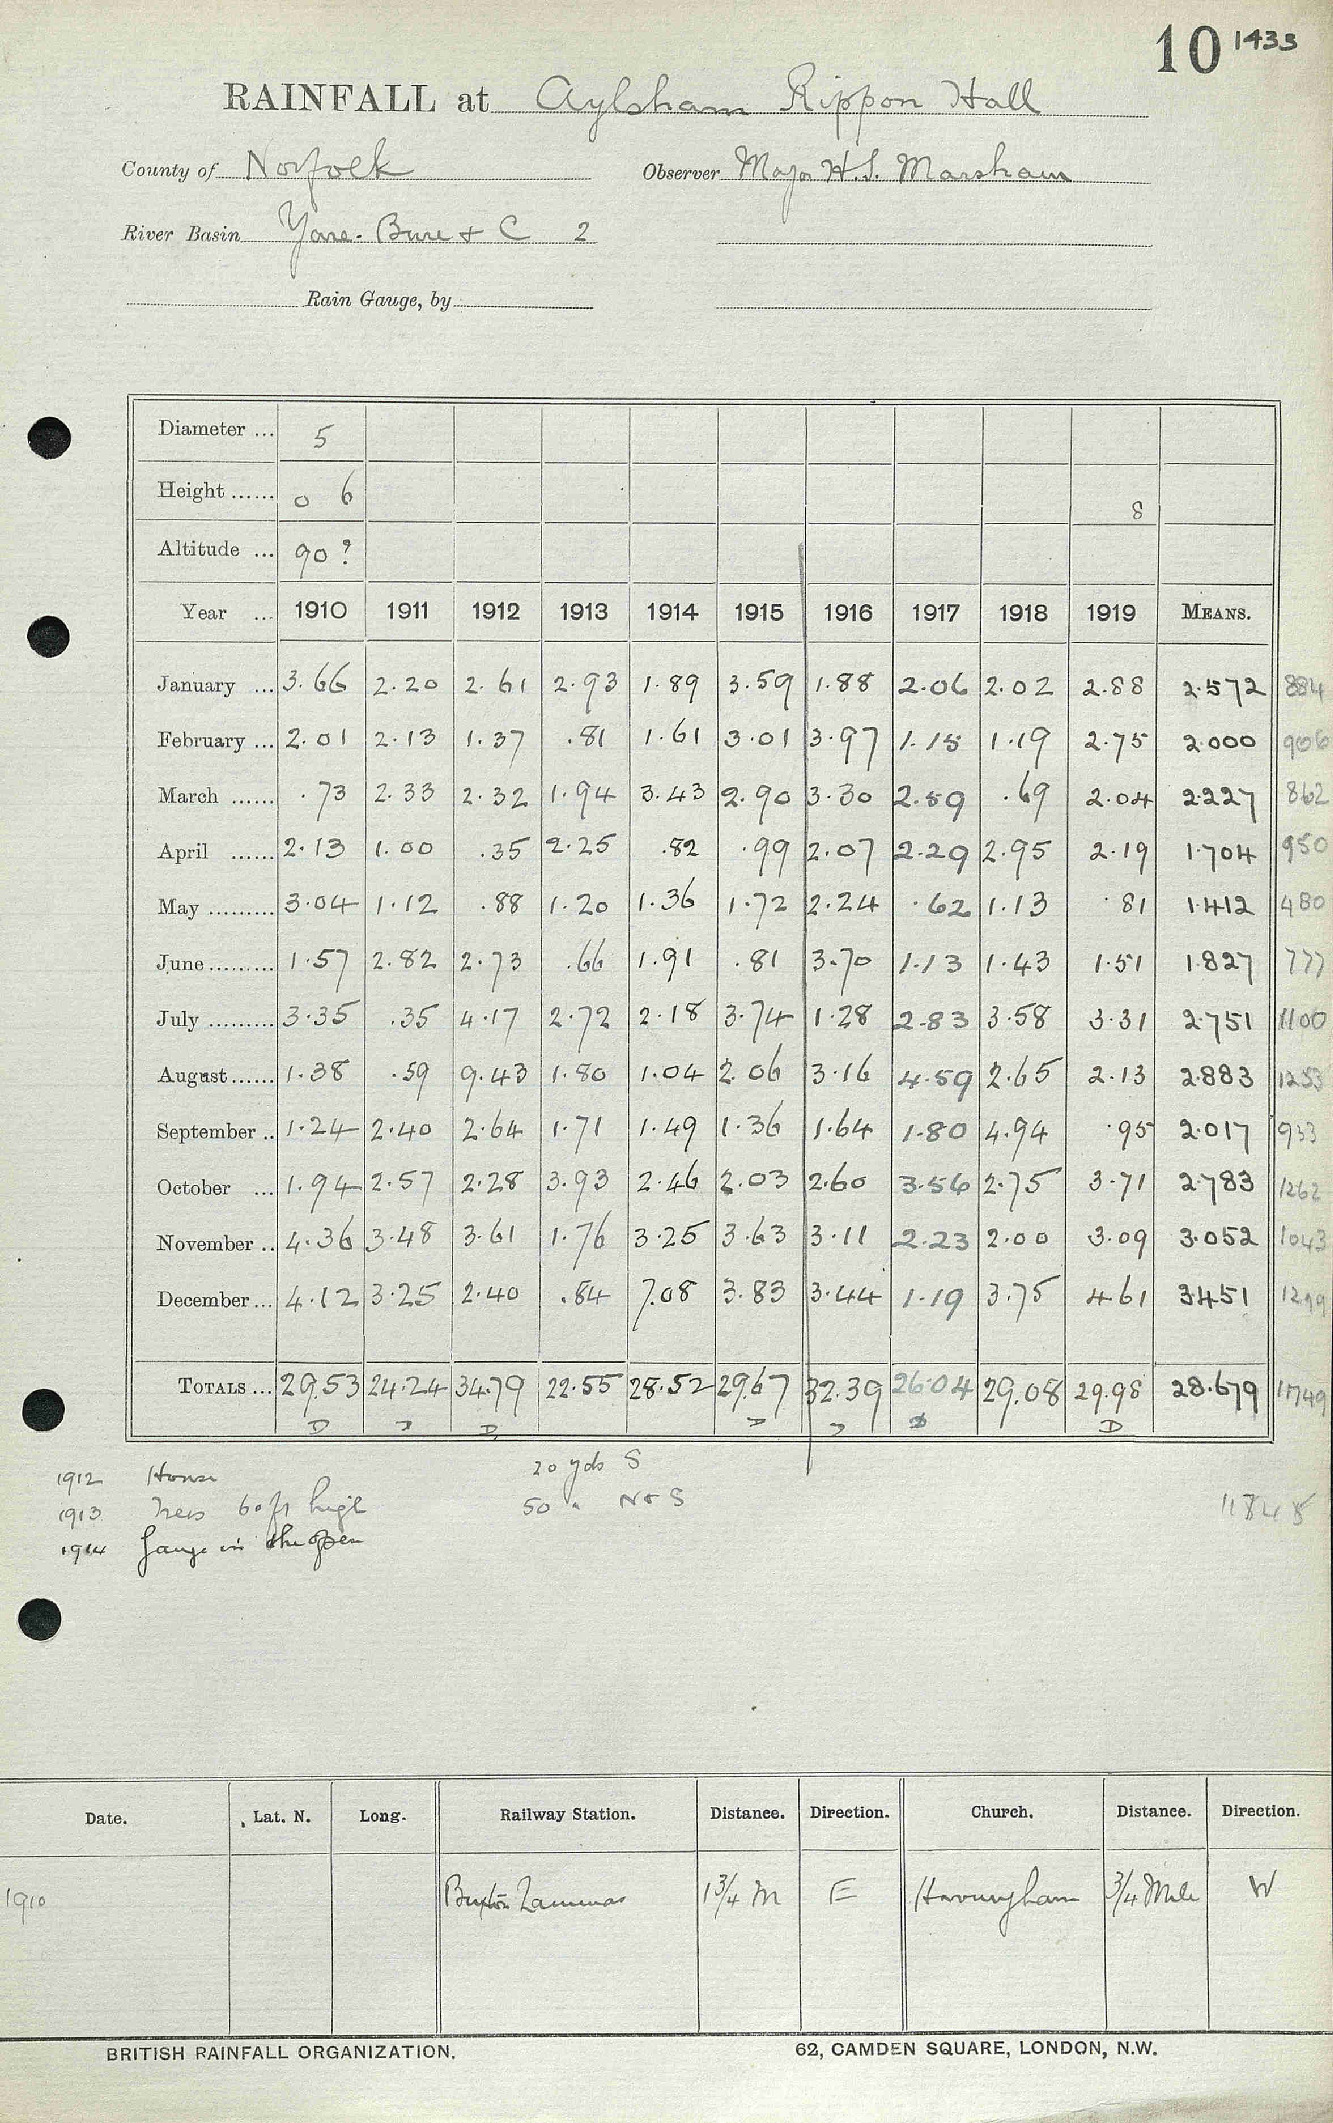 10 1433
RAINFALL at Aylsham Rippon Hall
County of Norfolk Observer Major H.S. Marsham
River Basin Yare - Bure & C 2
Rain Gauge, by
Diameter ... 5
Height ...... 0 6 8
Altitude ... 90 ?
Year ... 1910 1911 1912 1913 1914 1915 1916 1917 1918 1919 MEANS.
January ... 3.66 2.20 2.61 2.93 1.89 3.59 1.88 2.06 2.02 2.88 2.572 884
February ... 2.01 2.13 1.37 .81 1.61 3.01 3.97 1.15 1.19 2.75 2.000 906
March ...... .73 2.33 2.32 1.94 3.43 2.90 3.30 2.59 .69 2.04 2.227 862
April ...... 2.13 1.00 .35 2.25 .82 .99 2.07 2.29 2.95 2.19 1.704 950
May ......... 3.04 1.12 .88 1.20 1.36 1.72 2.24 .62 1.13 .81 1.412 480
June ......... 1.57 2.82 2.73 .66 1.91 .81 3.70 1.13 1.43 1.51 1.827 777
July ......... 3.35 .35 4.17 2.72 2.18 3.74 1.28 2.83 3.58 3.31 2.751 1100
August ...... 1.38 .59 9.43 1.80 1.04 2.06 3.16 4.59 2.65 2.13 2.883 1253
September .. 1.24 2.40 2.64 1.71 1.49 1.36 1.64 1.80 4.94 .95 2.017 933
October ... 1.94 2.57 2.28 3.93 2.46 2.03 2.60 3.56 2.75 3.71 2.783 1262
November .. 4.36 3.48 3.61 1.76 3.25 3.63 3.11 2.23 2.00 3.09 3.052 1043
December ... 4.12 3.25 2.40 .84 7.08 3.83 3.44 1.19 3.75 4.61 3.451 1299
TOTALS ... 29.53 24.24 34.79 22.55 28.52 29.67 32.39 26.04 29.08 29.98 28.679 11749
D D D D D D D
1912 House 20 yds S
1913 Trees 60 ft high 50 " N & S
1914 Gauge in the open
11848
Date. Lat. N. Long. Railway Station. Distance. Direction. Church. Distance. Direction.
1910 Buxton Lammas 1 3/4 M E Hevingham 3/4 Mile W
BRITISH RAINFALL ORGANIZATION. 62, CAMDEN SQUARE, LONDON, N.W.